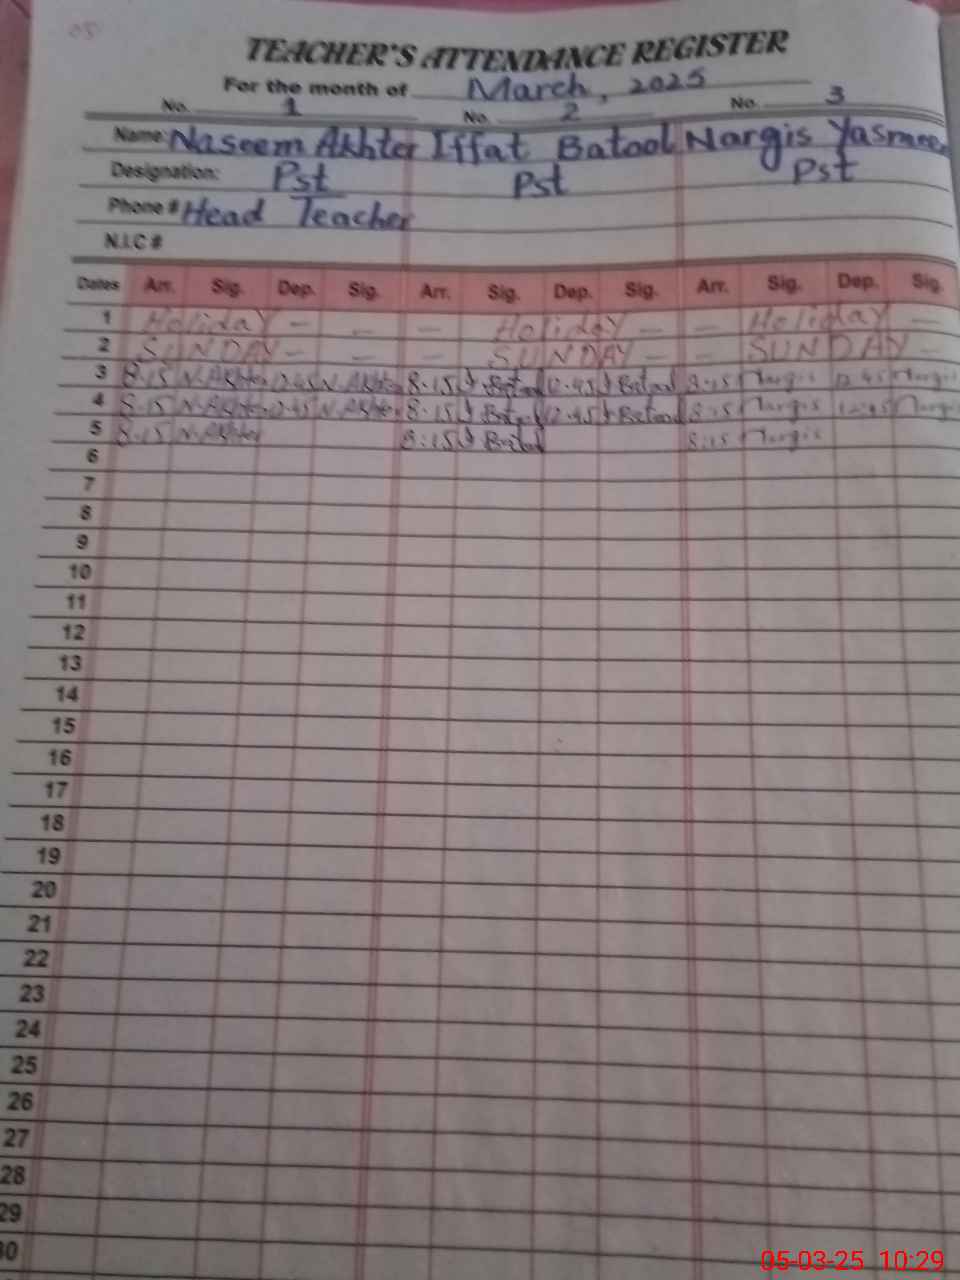 05
TEACHER'S ATTENDANCE REGISTER
For the month of March, 2025
No. 1 No. 2 No. 3
Name: Naseem Akhter Iffat Batool Nargis Yasmeen
Designation: Pst Pst Pst
Phone # Head Teacher
N.I.C #
Dates Arr. Sig. Dep. Sig. Arr. Sig. Dep. Sig. Arr. Sig. Dep. Sig.
1 Holiday - - - Holiday - - Holiday -
2 SUNDAY - - - SUNDAY - - SUNDAY -
3 8.15 N.Akhter 12.45 N.Akhter 8.15 Batool 12.45 Batool 8:15 Nargis 12.45 Nargis
4 8.15 N.Akhter 12.45 N.Akhter 8.15 Batool 12.45 Batool 8:15 Nargis 12:45 Nargis
5 8.15 N.Akhter 8:15 Batool 8:15 Nargis
6
7
8
9
10
11
12
13
14
15
16
17
18
19
20
21
22
23
24
25
26
27
28
29
30
05-03-25 10:29